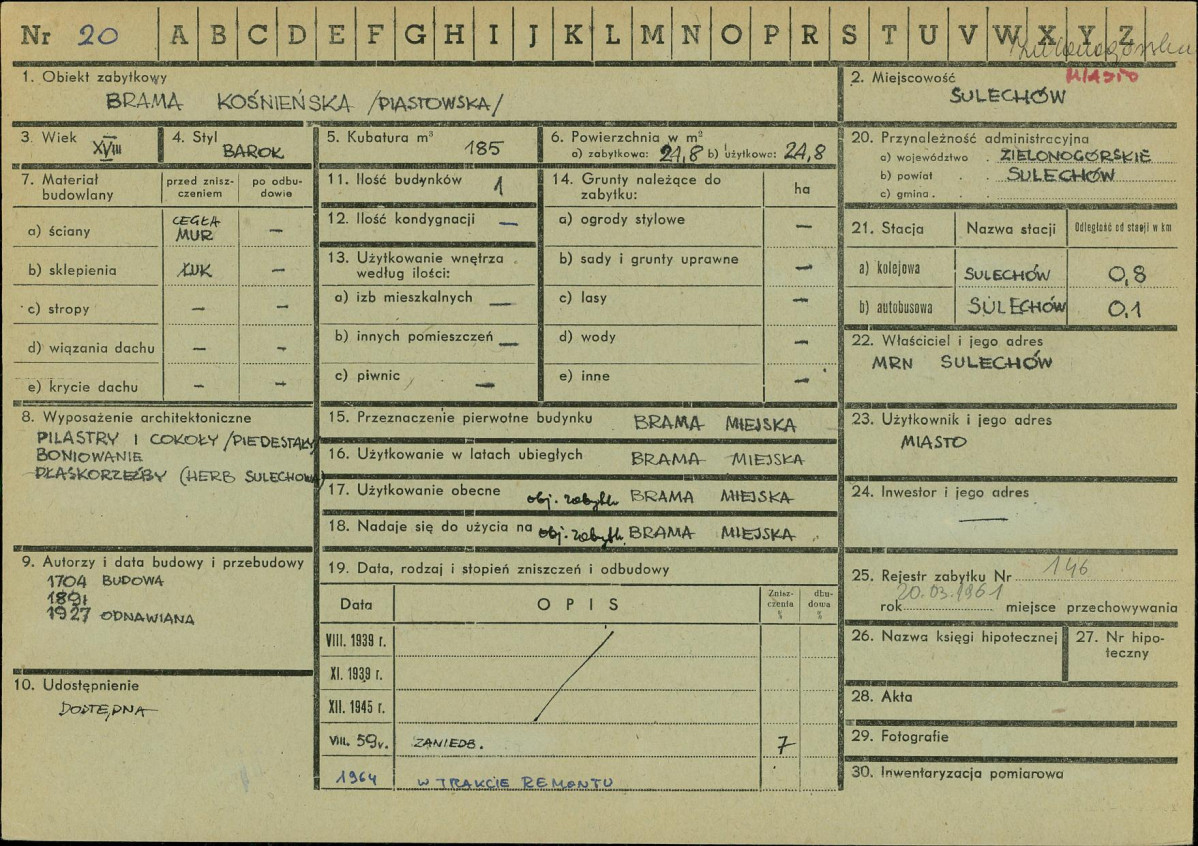 Nr 20 A B C D E F G H I J K L M N O P R S T U V W X Y Z
MIASTO
1. Obiekt zabytkowy
BRAMA KOŚNIEŃSKA /PIASTOWSKA/
2. Miejscowość
SULECHÓW
3. Wiek
XVIII
4. Styl
BAROK
5. Kubatura m³
185
6. Powierzchnia w m²
a) zabytkowa: 24,8 b) użytkowa: 24,8
20. Przynależność administracyjna
a) województwo ZIELONOGÓRSKIE
b) powiat SULECHÓW
c) gmina
7. Materiał budowlany
przed zniszczeniem
po odbudowie
a) ściany CEGŁA MUR –
b) sklepienia ŁUK –
c) stropy – –
d) wiązania dachu – –
e) krycie dachu – –
11. Ilość budynków 1
12. Ilość kondygnacji –
13. Użytkowanie wnętrza według ilości:
a) izb mieszkalnych –
b) innych pomieszczeń –
c) piwnic –
14. Grunty należące do zabytku:
ha
a) ogrody stylowe –
b) sady i grunty uprawne –
c) lasy –
d) wody –
e) inne –
21. Stacja Nazwa stacji Odległość od stacji w km
a) kolejowa SULECHÓW 0,8
b) autobusowa SULECHÓW 0,1
22. Właściciel i jego adres
MRN SULECHÓW
8. Wyposażenie architektoniczne
PILASTRY I COKOŁY /PIEDESTAŁY/
BONIOWANIE
PŁASKORZEŹBY (HERB SULECHOWA)
15. Przeznaczenie pierwotne budynku BRAMA MIEJSKA
16. Użytkowanie w latach ubiegłych BRAMA MIEJSKA
17. Użytkowanie obecne obj. zabytk. BRAMA MIEJSKA
18. Nadaje się do użycia na obj. zabytk. BRAMA MIEJSKA
23. Użytkownik i jego adres
MIASTO
24. Inwestor i jego adres
—
9. Autorzy i data budowy i przebudowy
1704 BUDOWA
1891
1927 ODNAWIANA
10. Udostępnienie
DOSTĘPNA
19. Data, rodzaj i stopień zniszczeń i odbudowy
Data OPIS Zniszczenia % dbudowa %
VIII. 1939 r.
XI. 1939 r.
XII. 1945 r.
VIII. 59 r. ZANIEDB. 7
1964 W TRAKCIE REMONTU
25. Rejestr zabytku Nr 146
rok 20.03.1961 miejsce przechowywania
26. Nazwa księgi hipotecznej
27. Nr hipoteczny
28. Akta
29. Fotografie
30. Inwentaryzacja pomiarowa